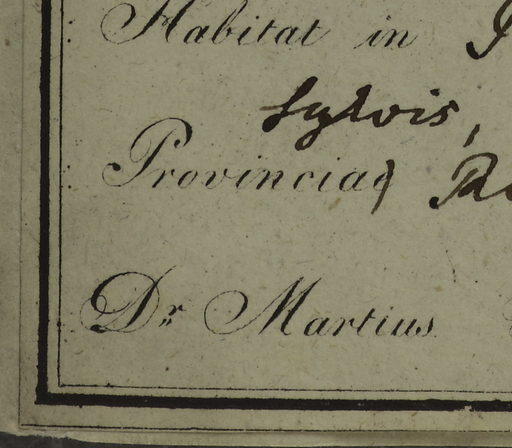 Habitat in
Sylvis,
Provinciae
Dr Martius